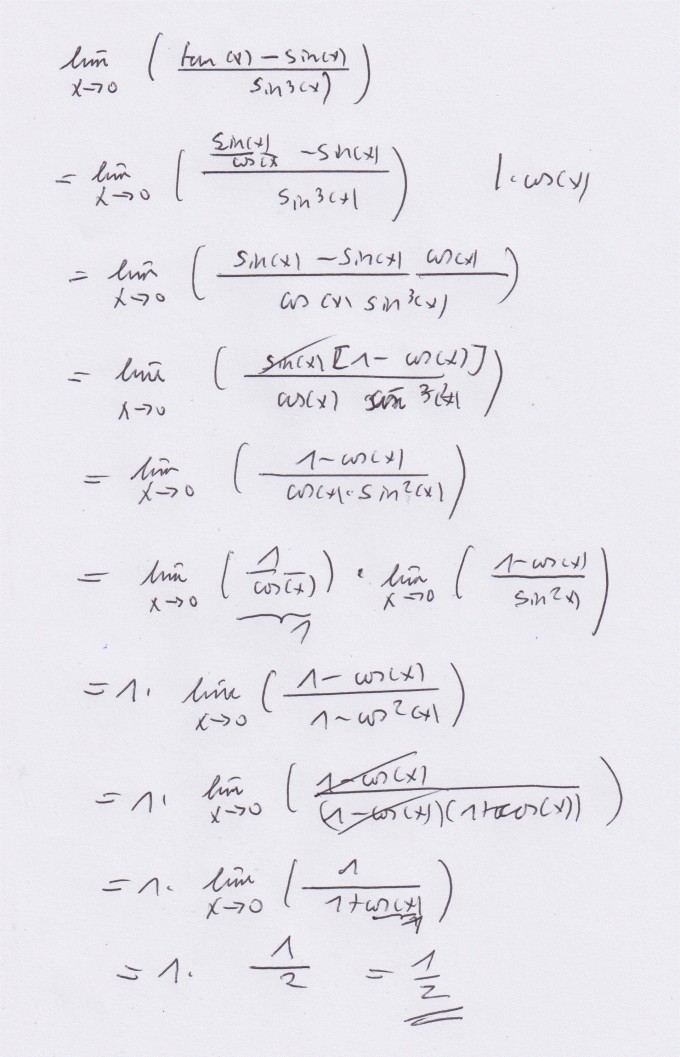 lim x→0 ( (tan(x) - sin(x)) / sin³(x) )
= lim x→0 ( (sin(x)/cos(x) - sin(x)) / sin³(x) ) | · cos(x)
= lim x→0 ( (sin(x) - sin(x) cos(x)) / (cos(x) sin³(x)) )
= lim x→0 ( (sin(x) [1 - cos(x)]) / (cos(x) sin²(x)) )
= lim x→0 ( (1 - cos(x)) / (cos(x) · sin²(x)) )
= lim x→0 ( 1 / cos(x) ) · lim x→0 ( (1 - cos(x)) / sin²(x) )
1
= 1 · lim x→0 ( (1 - cos(x)) / (1 - cos²(x)) )
= 1 · lim x→0 ( (1 - cos(x)) / ((1 - cos(x))(1 + cos(x))) )
= 1 · lim x→0 ( 1 / (1 + cos(x)) )
1
= 1 · 1/2 = 1/2